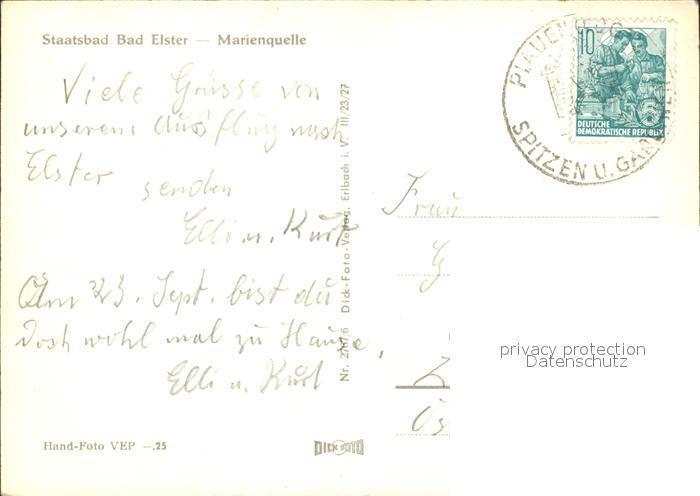 Staatsbad Bad Elster — Marienquelle
Viele Grüsse von
unserem Ausflug nach
Elster senden
Elli u. Kurt
Am 23. Sept. bist du
doch wohl mal zu Hause,
Elli u. Kurt
Hand-Foto VEP —.25
Nr. 2767/6 Dick-Foto-Verlag, Erlbach i. V. III/23/27
DICK FOTO
PLAUEN
SPITZEN U. GARDINEN
10
5
DEUTSCHE
DEMOKRATISCHE REPUBLIK
Frau
G
Ös
privacy protection
Datenschutz